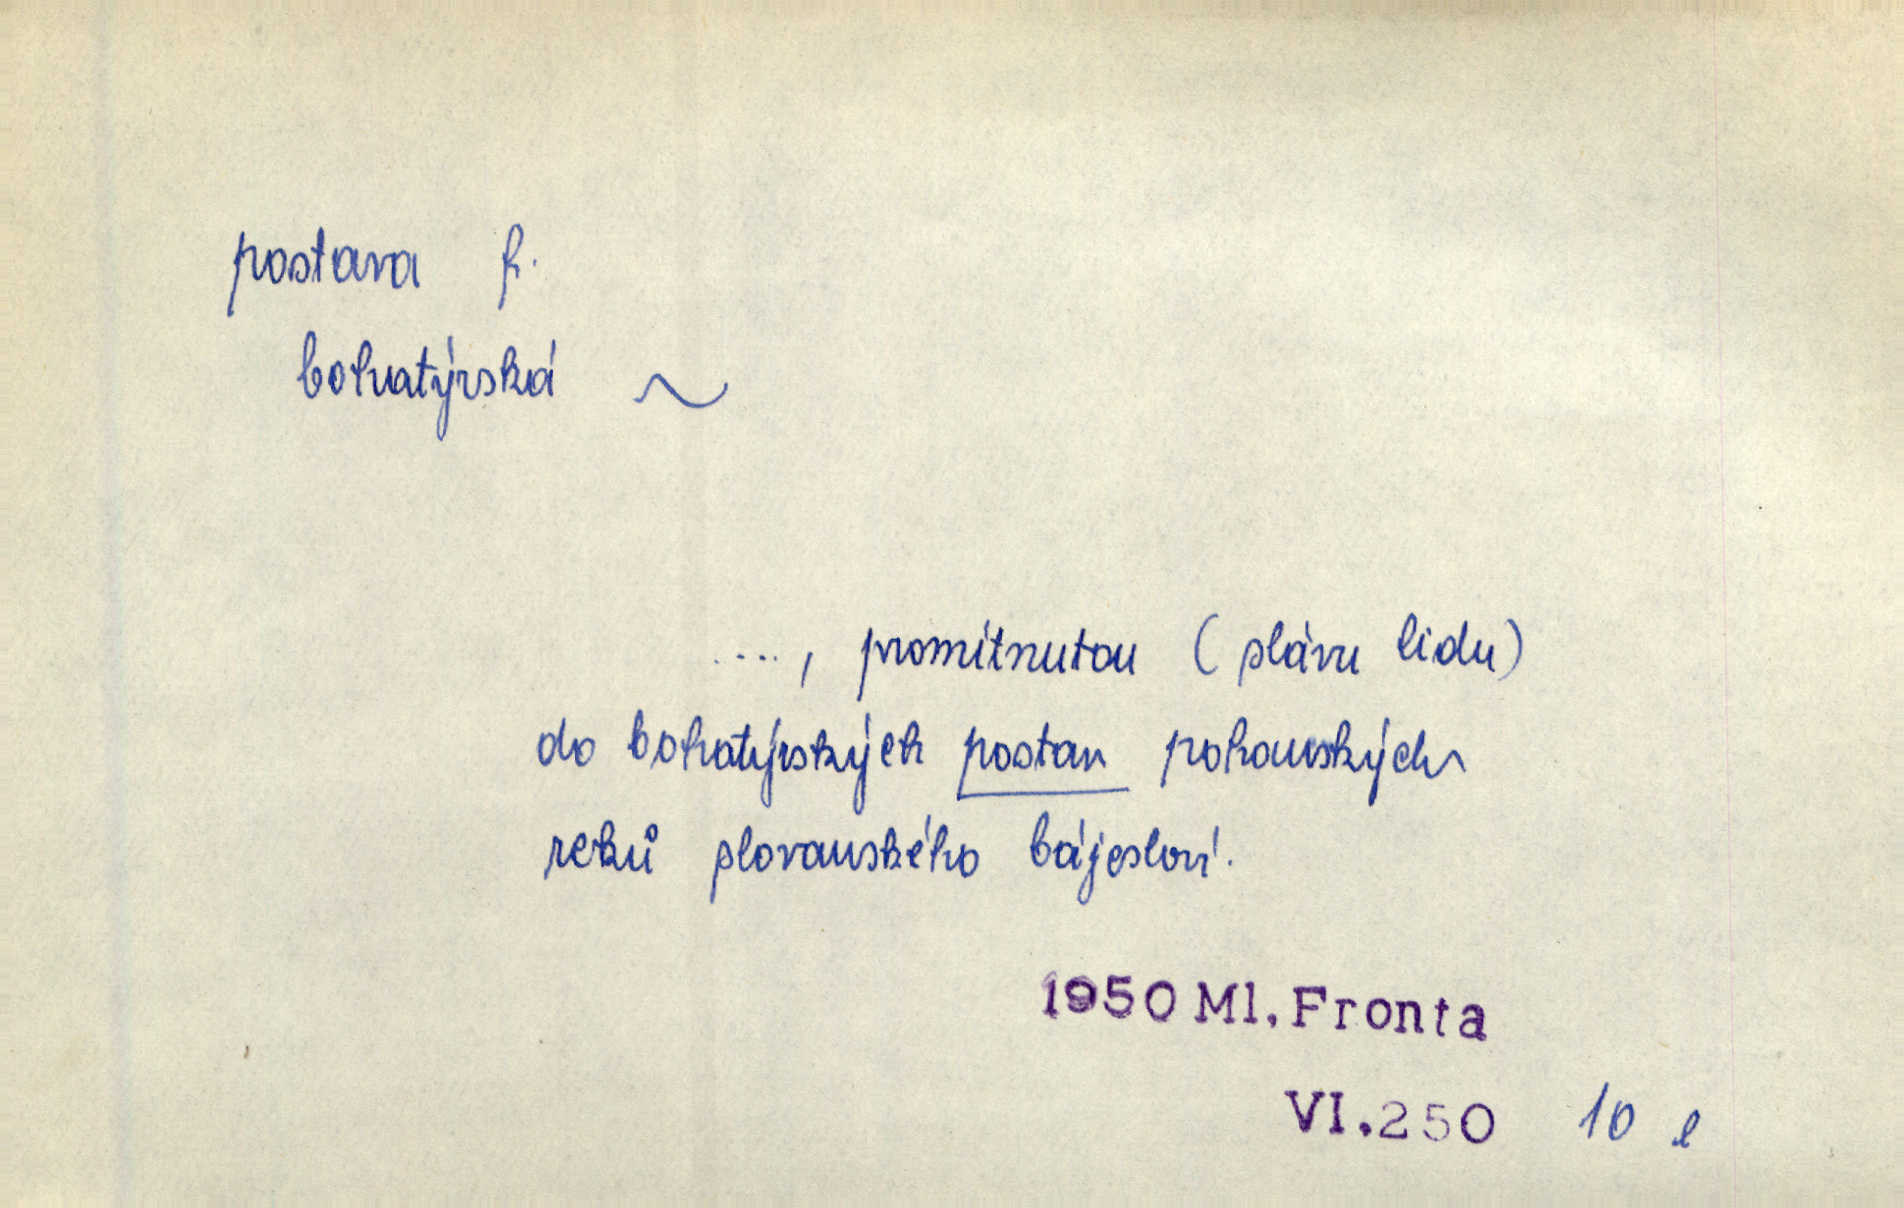 postava f.
bohatýrská ~
...., promítnutou (slávu lidu)
do bohatýrských postav pohanských
reků slovanského bájesloví.
1950 Ml. Fronta
VI.250 10 e